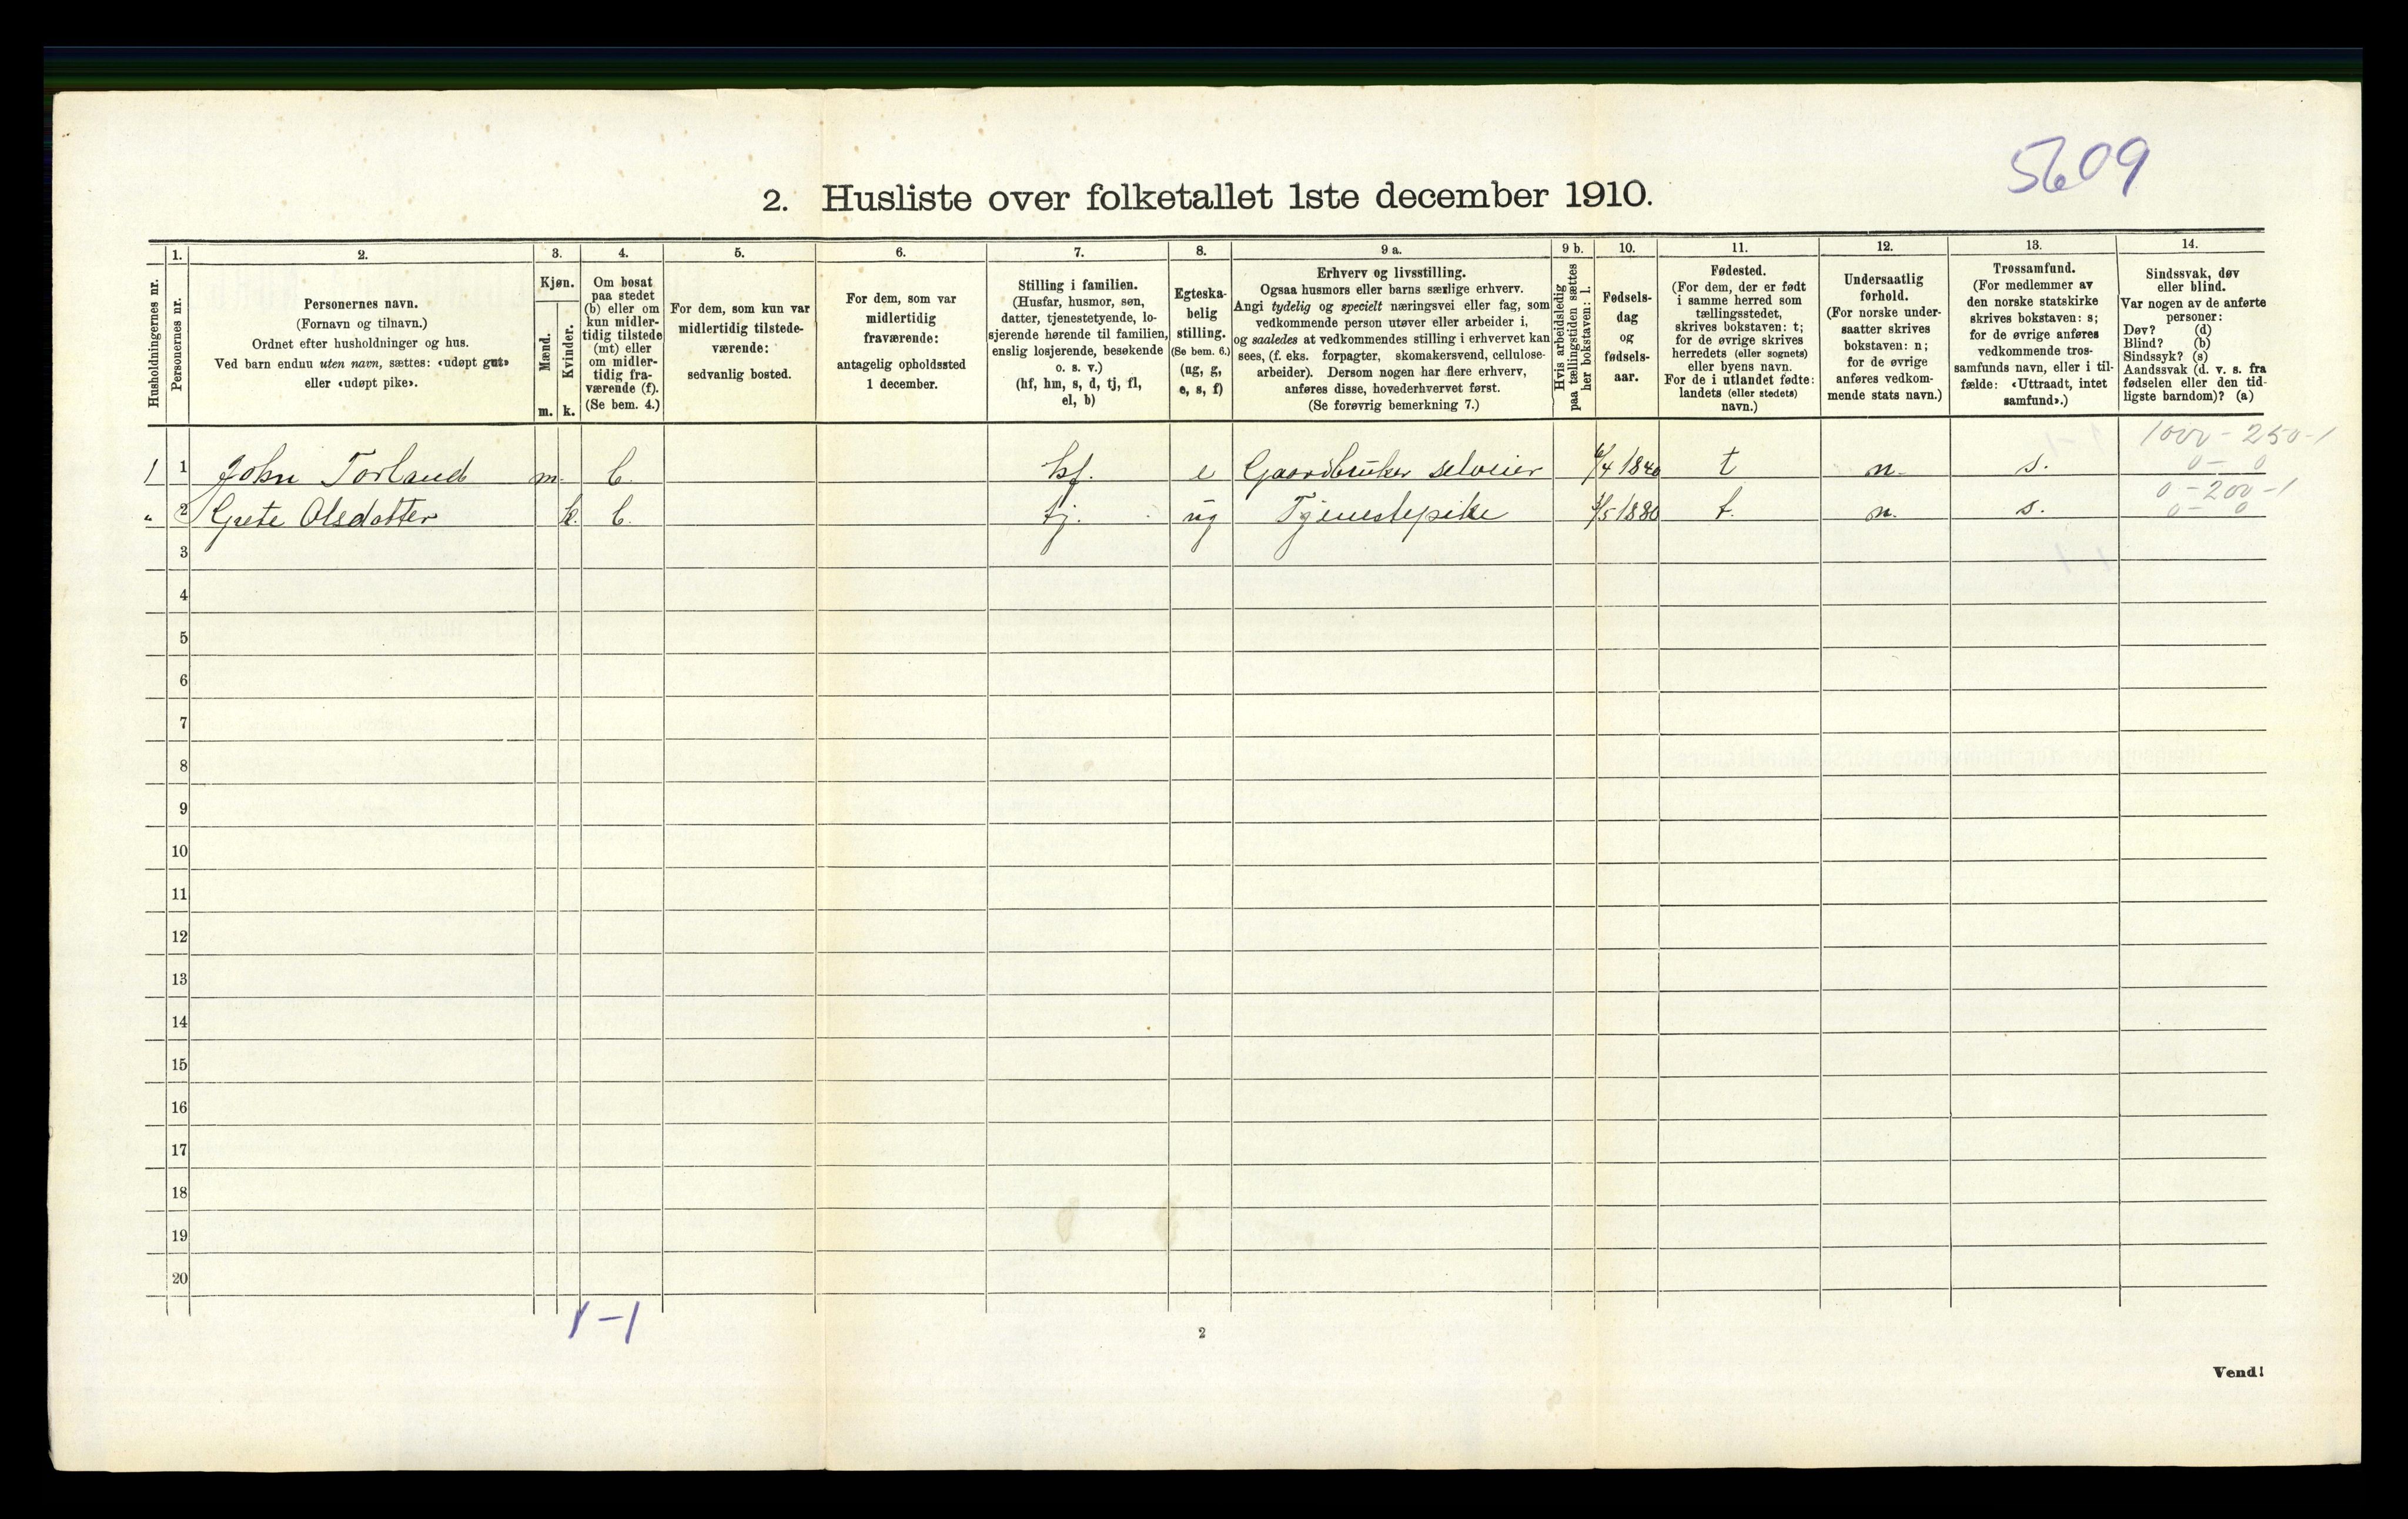 5609
2. Husliste over folketallet 1ste december 1910.
Husholdningernes nr.
1. Personernes nr.
2. Personernes navn.
(Fornavn og tilnavn.)
Ordnet efter husholdninger og hus.
Ved barn endnu uten navn, sættes: «udøpt gut»
eller «udøpt pike».
3. Kjøn.
Mænd. m.
Kvinder. k.
4. Om bosat
paa stedet
(b) eller om
kun midler-
tidig tilstede
(mt) eller
om midler-
tidig fra-
værende (f).
(Se bem. 4.)
5. For dem, som kun var
midlertidig tilstede-
værende:
sedvanlig bosted.
6. For dem, som var
midlertidig
fraværende:
antagelig opholdssted
1 december.
7. Stilling i familien.
(Husfar, husmor, søn,
datter, tjenestetyende, lo-
sjerende hørende til familien,
enslig losjerende, besøkende
o. s. v.)
(hf, hm, s, d, tj, fl,
el, b)
8. Egteska-
belig
stilling.
(Se bem. 6.)
(ug, g,
e, s, f)
9 a. Erhverv og livsstilling.
Ogsaa husmors eller barns særlige erhverv.
Angi tydelig og specielt næringsvei eller fag, som
vedkommende person utøver eller arbeider i,
og saaledes at vedkommendes stilling i erhvervet kan
sees, (f. eks. forpagter, skomakersvend, cellulose-
arbeider). Dersom nogen har flere erhverv,
anføres disse, hovederhvervet først.
(Se forøvrig bemerkning 7.)
9 b. Hvis arbeidsledig
paa tællingstiden sættes
her bokstaven: l.
10. Fødsels-
dag
og
fødsels-
aar.
11. Fødested.
(For dem, der er født
i samme herred som
tællingsstedet,
skrives bokstaven: t;
for de øvrige skrives
herredets (eller sognets)
eller byens navn.
For de i utlandet fødte:
landets (eller stedets)
navn.)
12. Undersaatlig
forhold.
(For norske under-
saatter skrives
bokstaven: n;
for de øvrige
anføres vedkom-
mende stats navn.)
13. Trossamfund.
(For medlemmer av
den norske statskirke
skrives bokstaven: s;
for de øvrige anføres
vedkommende tros-
samfunds navn, eller i til-
fælde: «Uttraadt, intet
samfund».)
14. Sindssvak, døv
eller blind.
Var nogen av de anførte
personer:
Døv? (d)
Blind? (b)
Sindssyk? (s)
Aandssvak (d. v. s. fra
fødselen eller den tid-
ligste barndom)? (a)
1000 - 250 - 1
1 1 John Torland m. b. hf. e Gaardbruker selveier 6/4 1840 t n. s. 0 - 0
0 - 200 - 1
" 2 Grete Olsdatter k. b. tj. ug Tjenestepike /5 1880 t. n. s. 0 - 0
3
4
5
6
7
8
9
10
11
12
13
14
15
16
17
18
19
20
1-1
2
Vend!